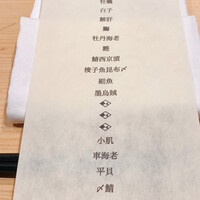 牡蠣
白子
鮟肝
鰤
牡丹海老
鰹
鰆西京漬
梭子魚昆布〆
細魚
墨烏賊
小肌
車海老
平貝
〆鯖